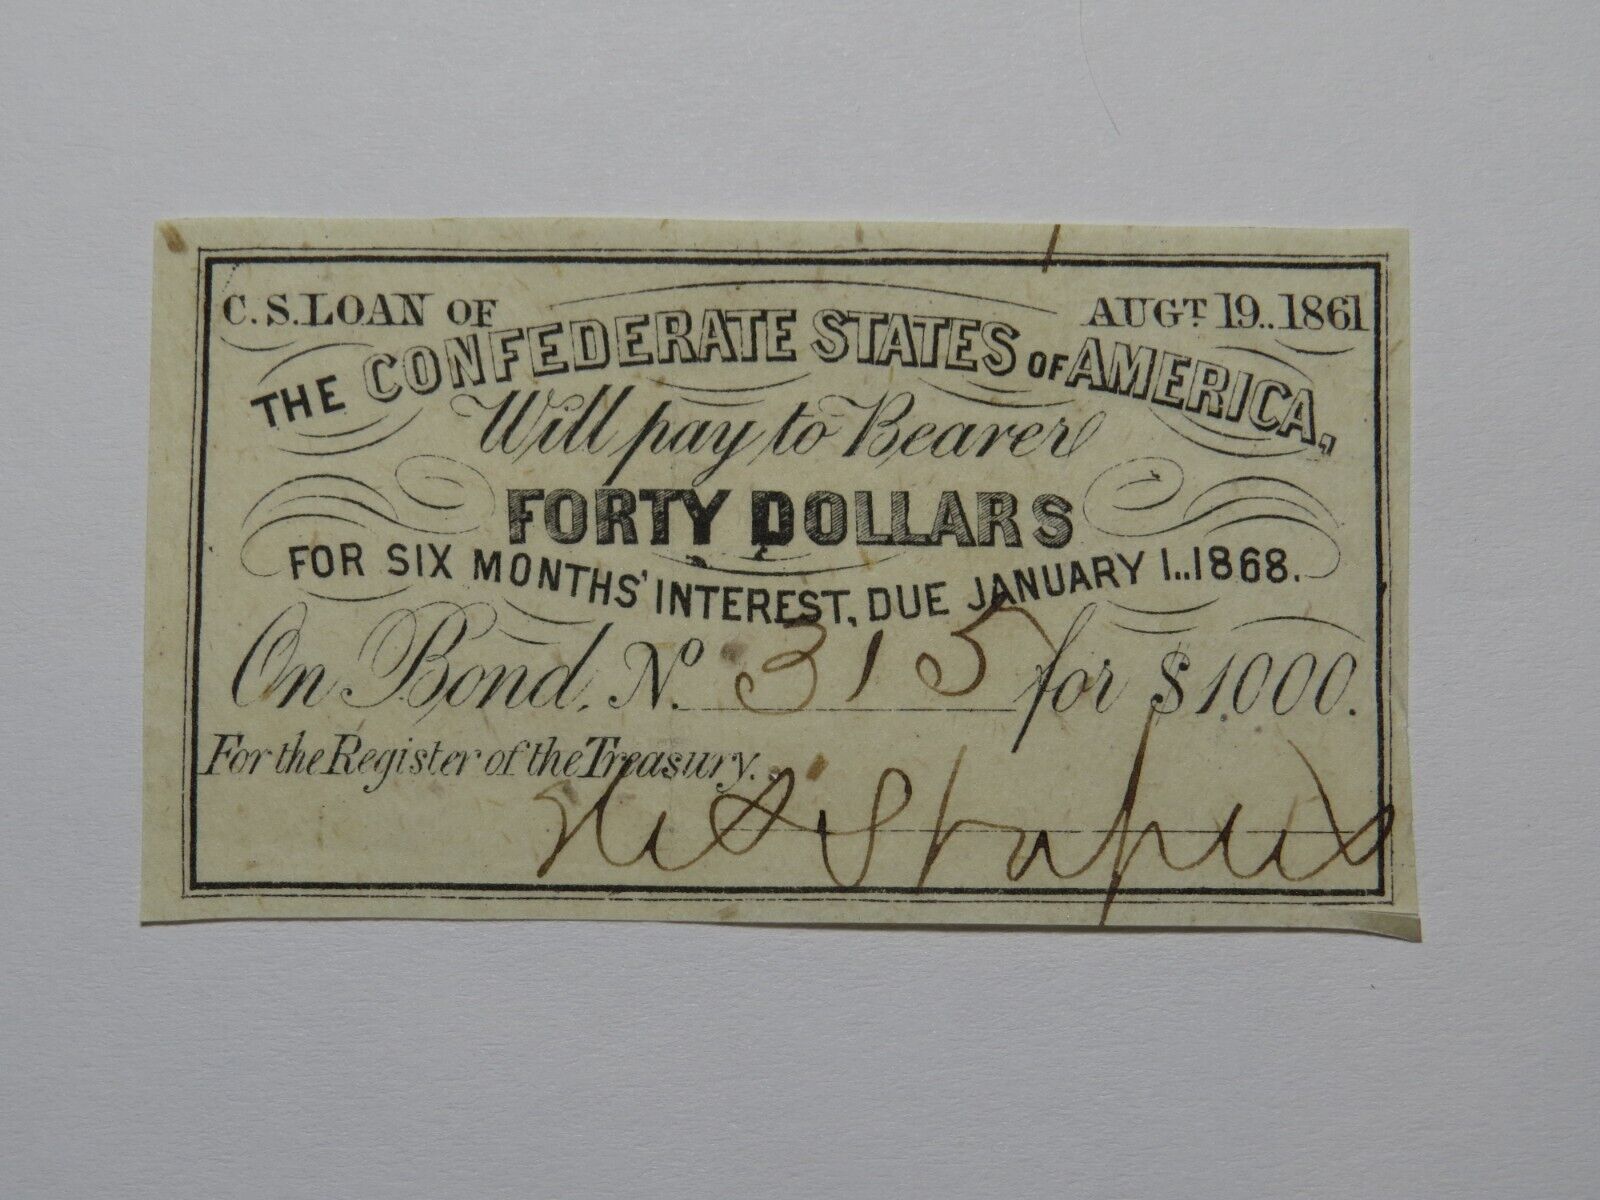 C. S. LOAN OF AUGT. 19.. 1861
THE CONFEDERATE STATES OF AMERICA,
Will pay to Bearer
FORTY DOLLARS
FOR SIX MONTHS' INTEREST, DUE JANUARY 1..1868.
On Bond, No. 315 for $1.000.
For the Register of the Treasury.